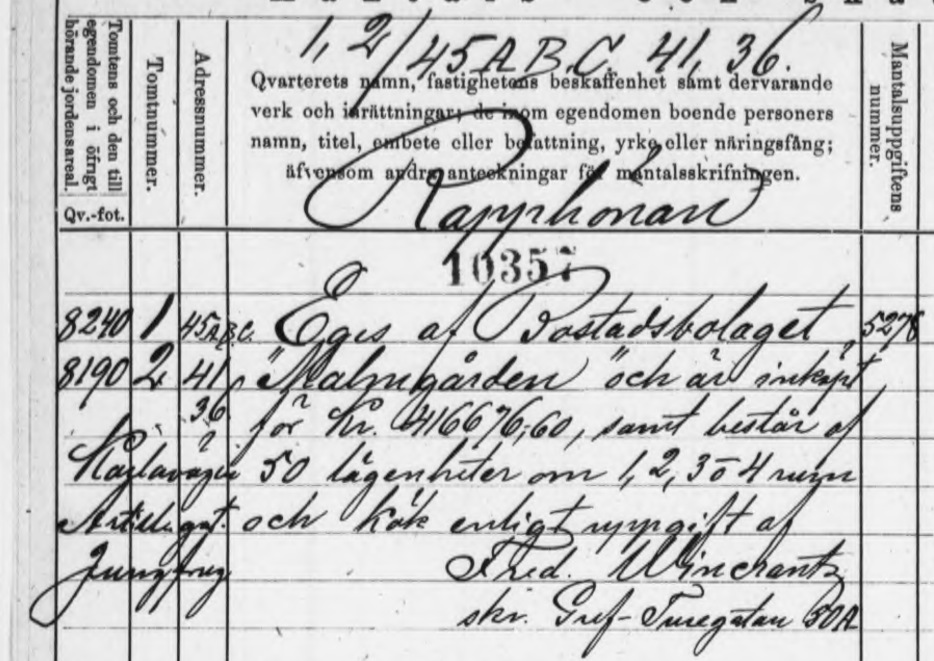 1, 2/45 A B.C. 41, 36.
Tomtens och den till egendomen i öfrigt hörande jordensareal.
Qv.-fot.
Tomtnummer.
Adressnummer.
Qvarterets namn, fastighetens beskaffenhet samt dervarande
verk och inrättningar; de inom egendomen boende personers
namn, titel, embete eller befattning, yrke eller näringsfång;
äfvensom andra anteckningar för mantalsskrifningen.
Mantalsuppgiftens nummer.
Rapphönan
10357
8240 1 45 A B.C. Eges af Bostadsbolaget 5278
8190 2 41, "Malmgården" och är inköpt
36 för Kr. 416676,60, samt består af
Karlavägen 50 lägenheter om 1, 2, 3 o 4 rum
Artillerigat. och kök enligt uppgift af
Jungfrug Fred. Wincrantz
skr. Gref-Turegatan 50A